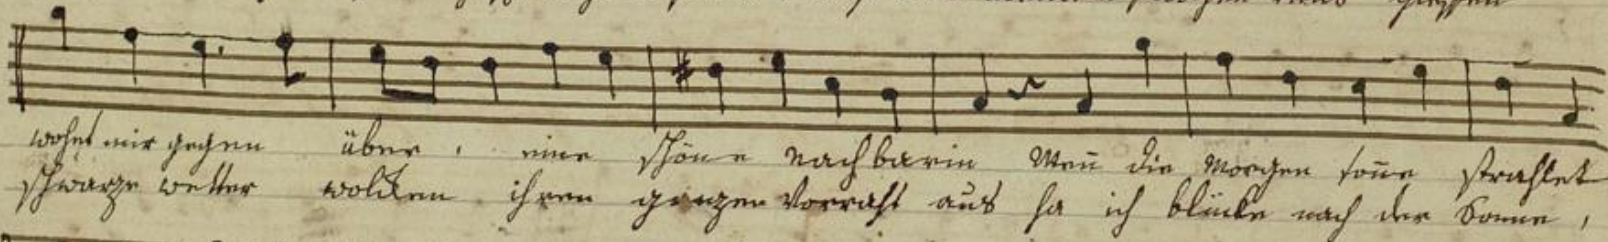 wohnt mir gegen über, eine schöne Nachbarin Weñ die Morgen soñe strahlet
schwarze wetter wolken ihren ganzen Vorraht aus ha ich blicke nach der Sonne,